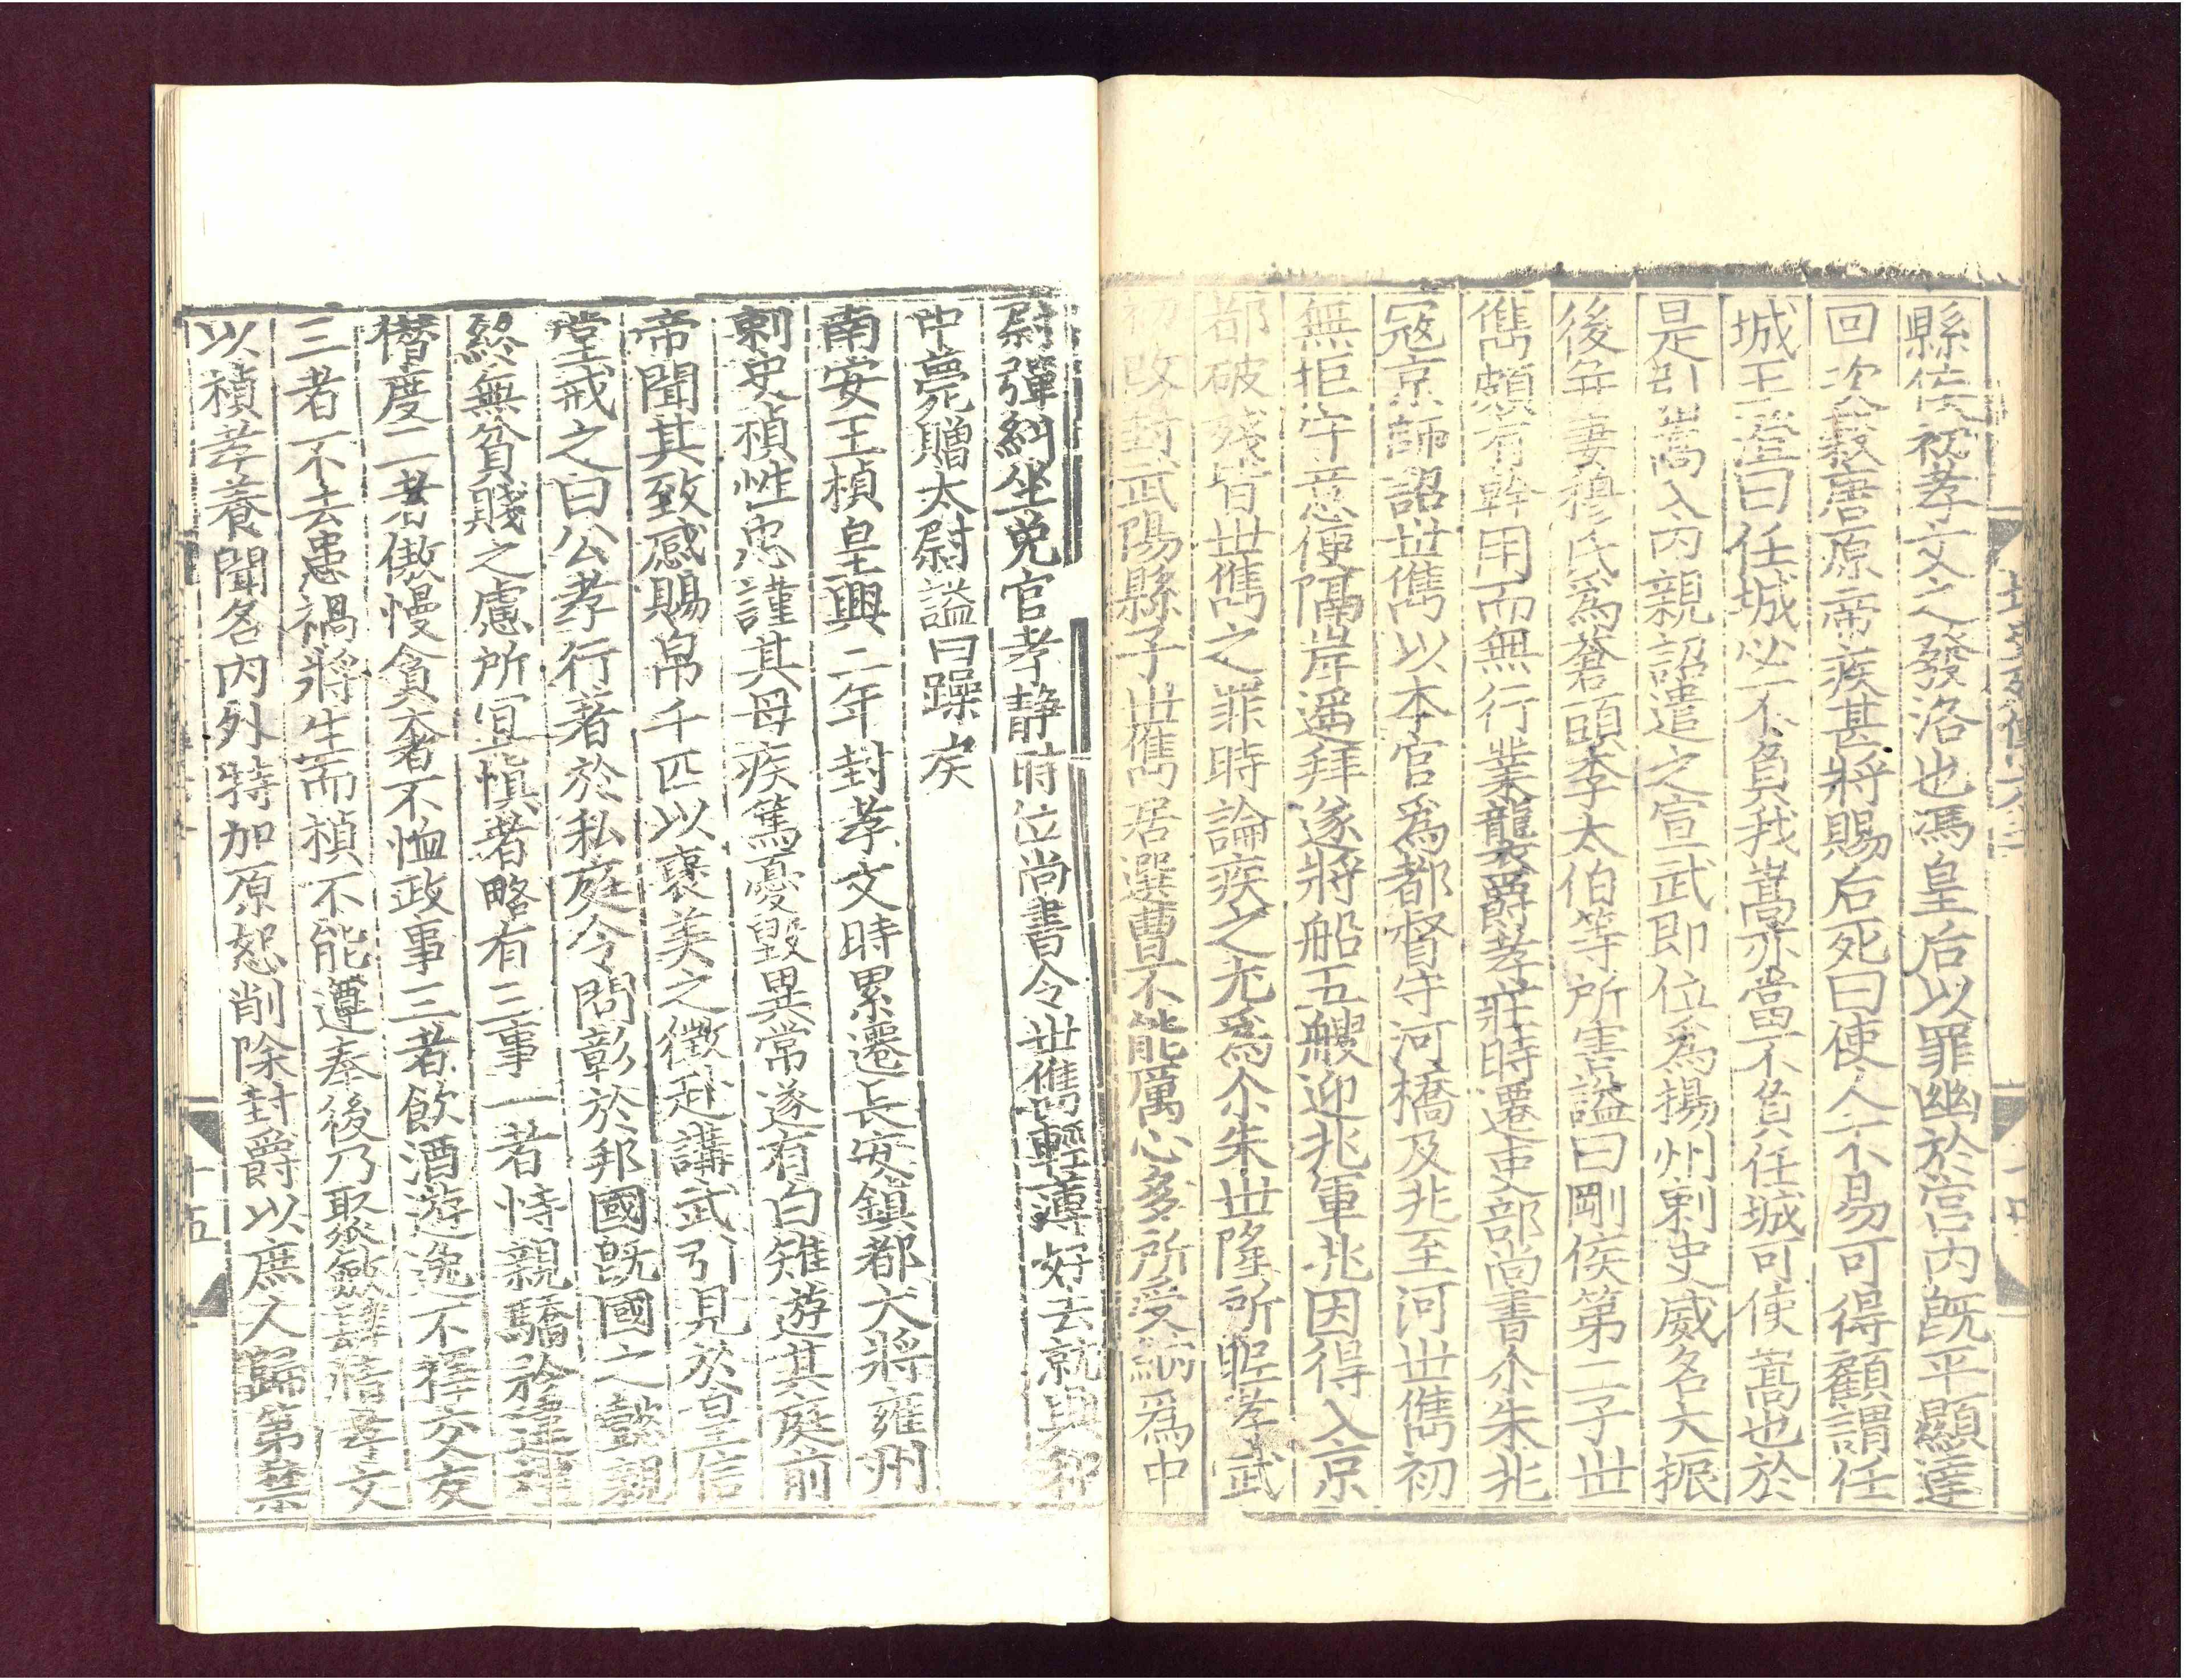 縣侯初孝文之發洛也馮皇后以罪幽於宮内旣平顯達
回次穀唐原帝疾甚將賜后死曰使人不易可得顧謂任
城王澄曰任城必不負我嵩亦當不負任城可使嵩也於
是引嵩入内親詔遣之宣武即位爲揚州刺史威名大振
後并妻穆氏爲蒼頭李太伯等所害謚曰剛侯第二子世
儁頗有幹用而無行業襲爵孝莊時遷吏部尚書尒朱兆
寇京師詔世儁以本官爲都督守河橋及兆至河世儁初
無拒守意便隔岸遥拜遂將船五艘迎兆軍兆因得入京
都破殘皆世儁之罪時論疾之尤爲尒朱世隆所昵孝武
初改封武陽縣子世儁居選曹不能厲心多所受納爲中
尉彈糾坐免官孝静時位尚書令世儁輕薄好去就興和
中薨贈太尉謚曰躁戾
南安王楨皇興二年封孝文時累遷長安鎮都大將雍州
刺史楨性忠謹其母疾篤憂毀異常遂有白雉遊其庭前
帝聞其致感賜帛千匹以褒美之徵赴講武引見於皇信
堂戒之曰公孝行著於私庭令問彰於邦國旣國之懿親
終無貧賤之慮所宜慎者略有三事一者恃親驕矜違禮
僣度二者傲慢貪奢不恤政事三者飲酒遊逸不擇交友
三者不去患禍將生而楨不能遵奉後乃聚斂肆情孝文
以楨孝養聞名内外特加原恕削除封爵以庶人歸第禁
十五